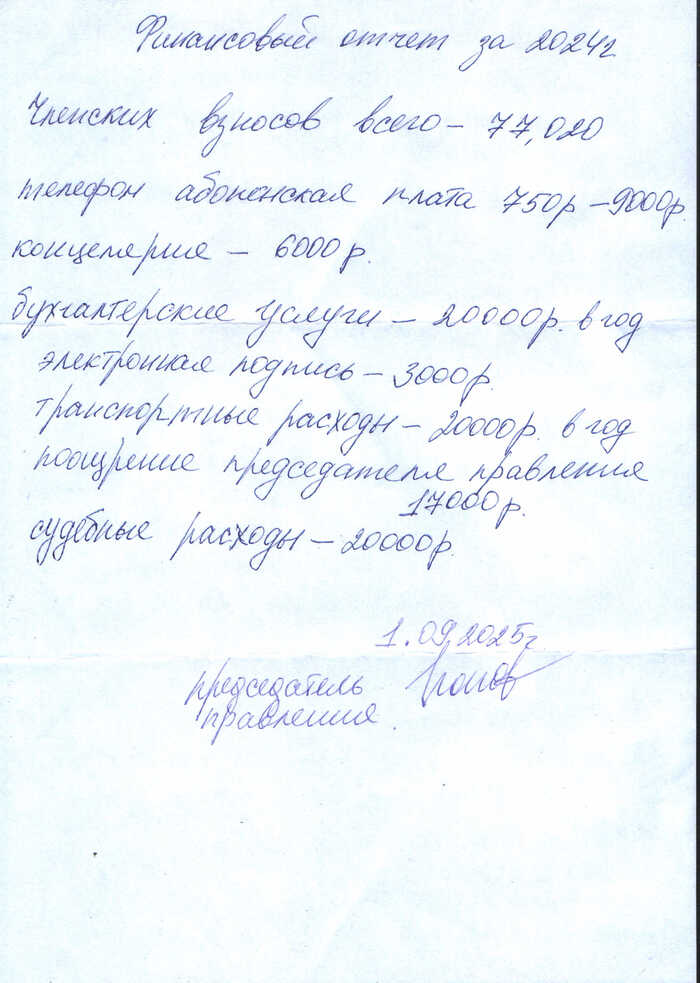 Финансовый отчет за 2024г
Членских взносов всего – 77,020
телефон абоненская плата 750р – 9000р.
концелярия – 6000р.
бухгалтерские услуги – 20000р. в год
электронная подпись – 3000р.
транспортные расходы – 20000р. в год
поощрение председателя правления
17000р.
судебные расходы – 20000р.
1.09.2025г
председатель
правления